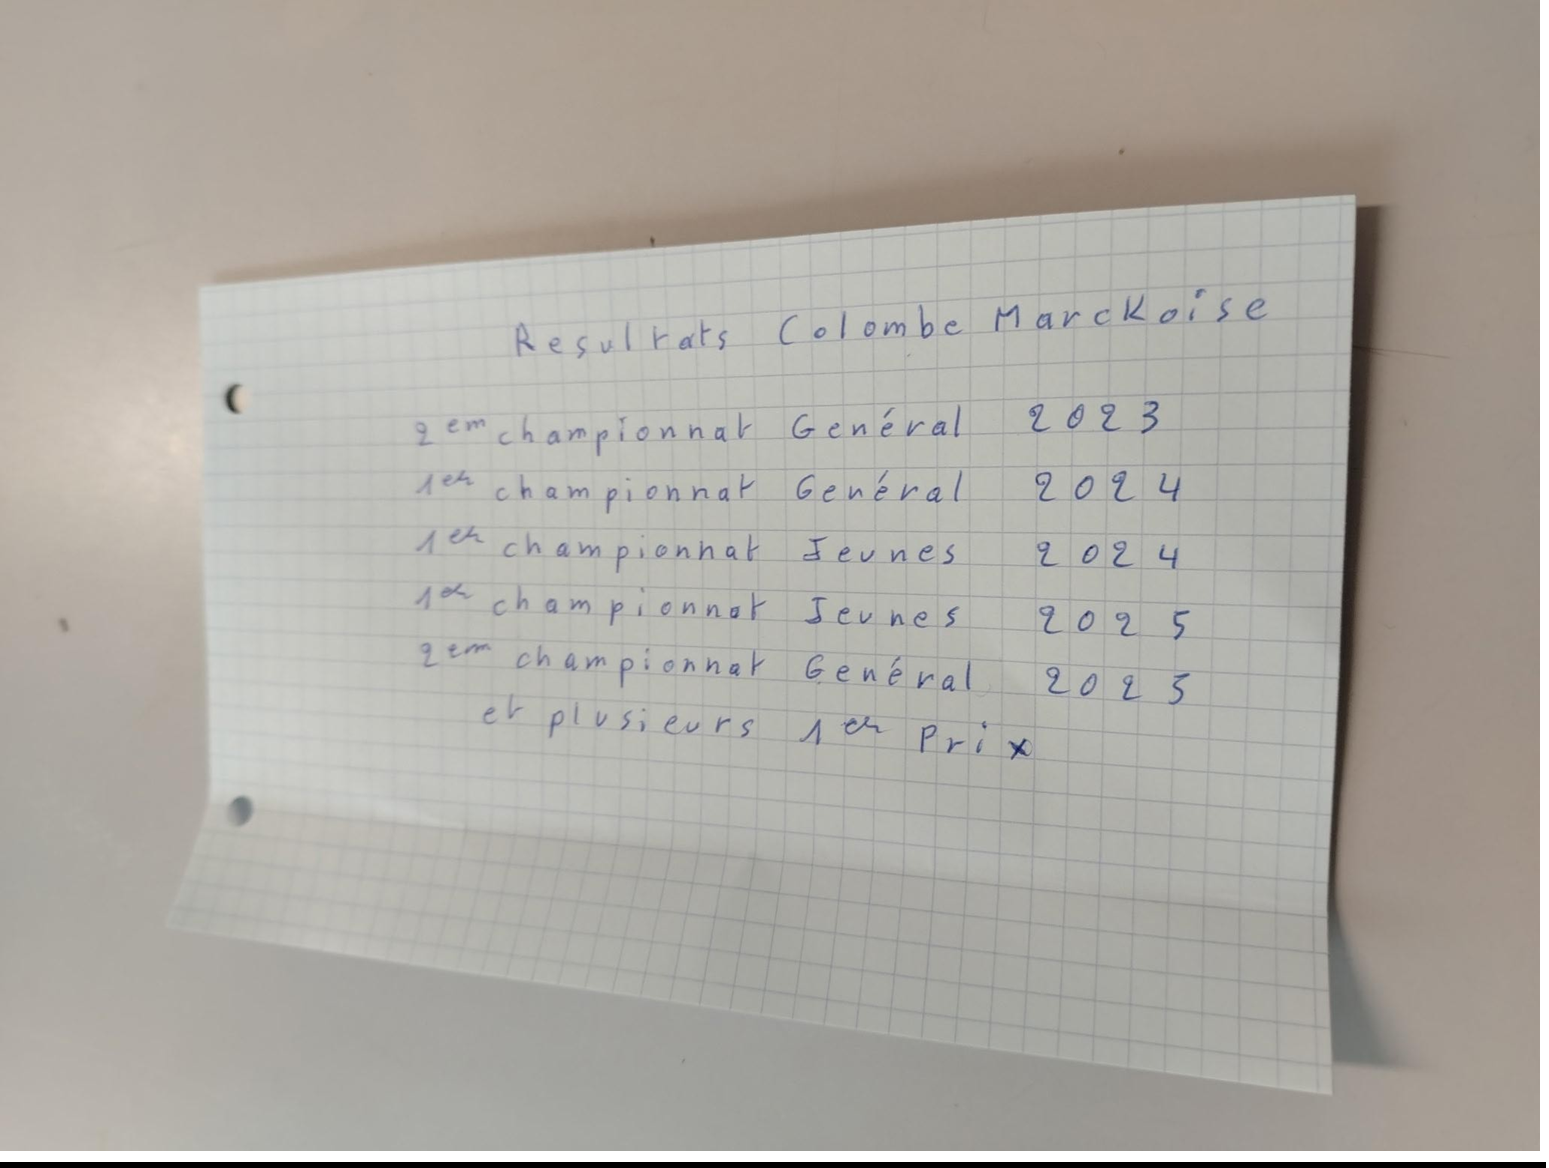 Resultats Colombe Marckoise
2em championnat Genéral 2023
1er championnat Genéral 2024
1er championnat Jeunes 2024
1er championnat Jeunes 2025
2em championnat Genéral 2025
et plusieurs 1er Prix